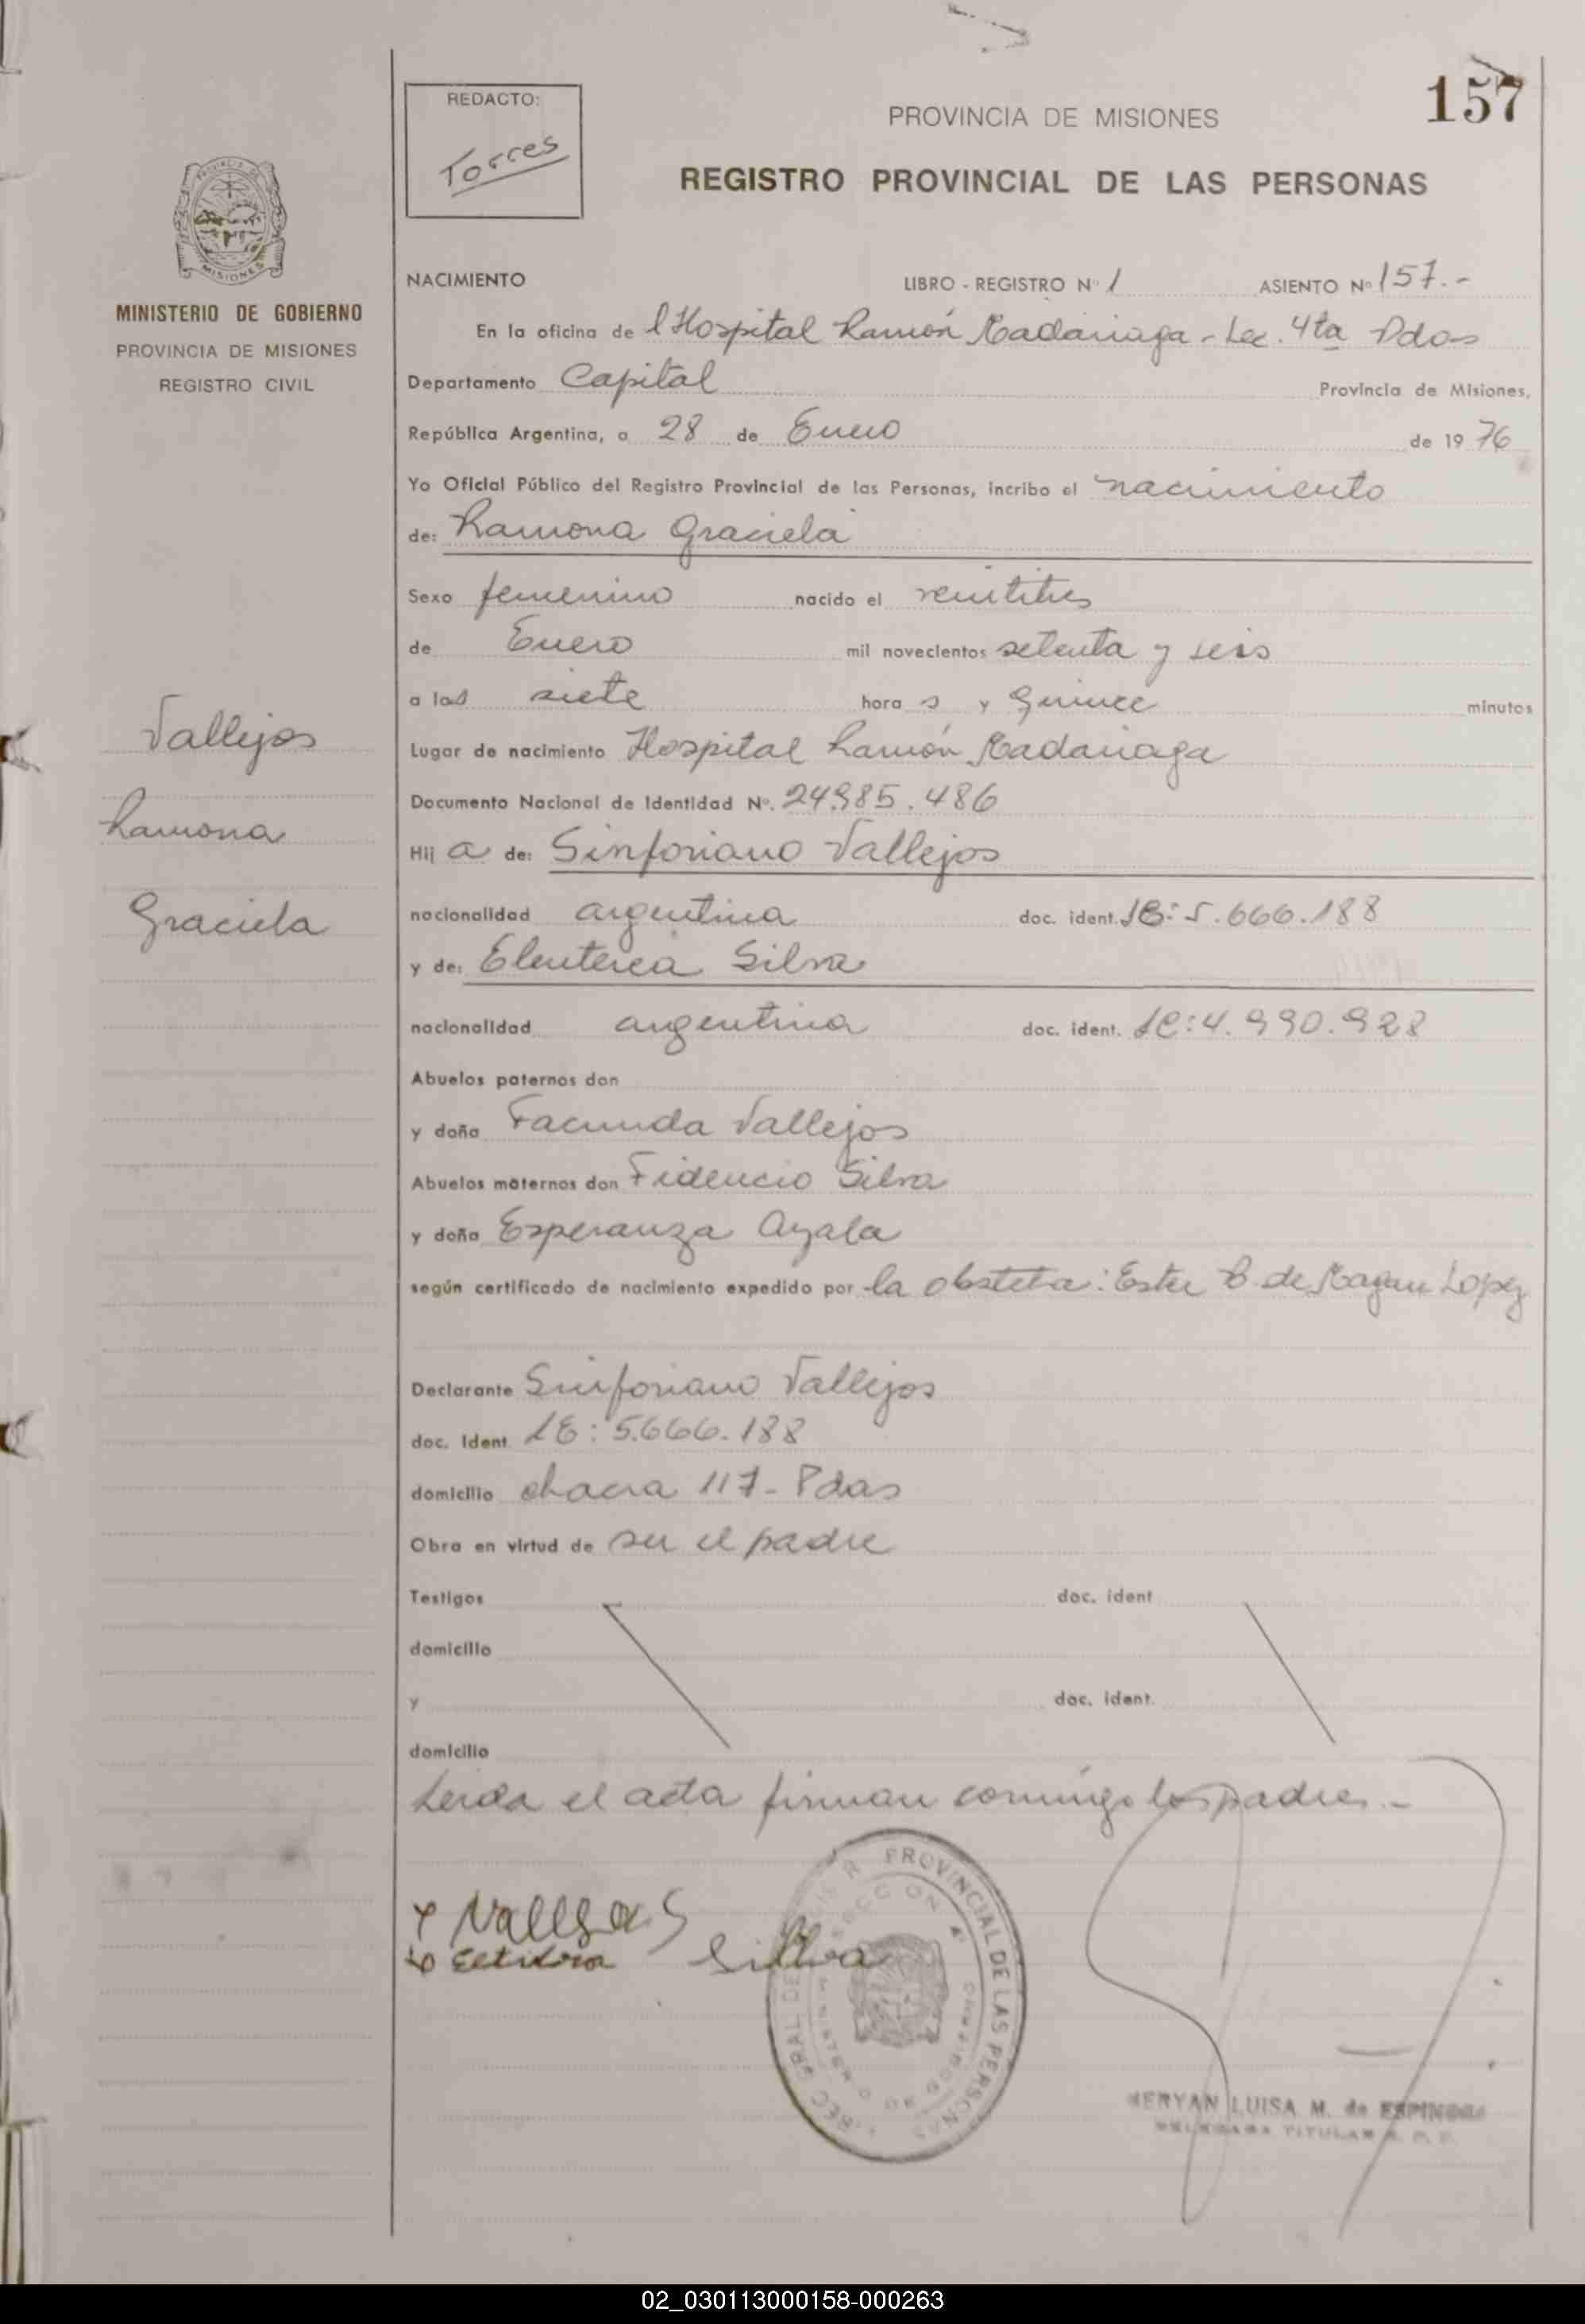 157
REDACTO:
Torres
PROVINCIA DE MISIONES
REGISTRO PROVINCIAL DE LAS PERSONAS
MISIONES
MINISTERIO DE GOBIERNO
PROVINCIA DE MISIONES
REGISTRO CIVIL
Vallejos
Ramona
Graciela
NACIMIENTO LIBRO - REGISTRO Nº 1 ASIENTO Nº 157.-
En la oficina de l Hospital Ramón Madariaga - Sec. 4ta Pdas
Departamento Capital Provincia de Misiones,
República Argentina, a 28 de Enero de 1976
Yo Oficial Público del Registro Provincial de las Personas, incribo el nacimiento
de: Ramona Graciela
Sexo femenino nacido el veintitres
de Enero mil novecientos setenta y seis
a las siete hora s y Quince minutos
Lugar de nacimiento Hospital Ramón Madariaga
Documento Nacional de Identidad Nº. 24.985.486
Hij a de: Sinforiano Vallejos
nacionalidad argentina doc. ident. LE: 5.666.188
y de: Eleuterea Silva
nacionalidad argentina doc. ident. LC: 4.990.928
Abuelos paternos don
y doña Facunda Vallejos
Abuelos maternos don Fidencio Silva
y doña Esperanza Ayala
según certificado de nacimiento expedido por la obstetra: Ester B. de Magan Lopez
Declarante Sinforiano Vallejos
doc. Ident. LE: 5.666.188
domicilio chacra 117 - Pdas
Obra en virtud de ser el padre
Testigos doc. ident
domicilio
y doc. ident.
domicilio
Leida el acta firman conmigo los padres.-
Silva
PROVINCIAL DE LAS PERSONAS
SECCION 4ª
LUISA M. de ESPINOSA
TITULAR
02_030113000158-000263